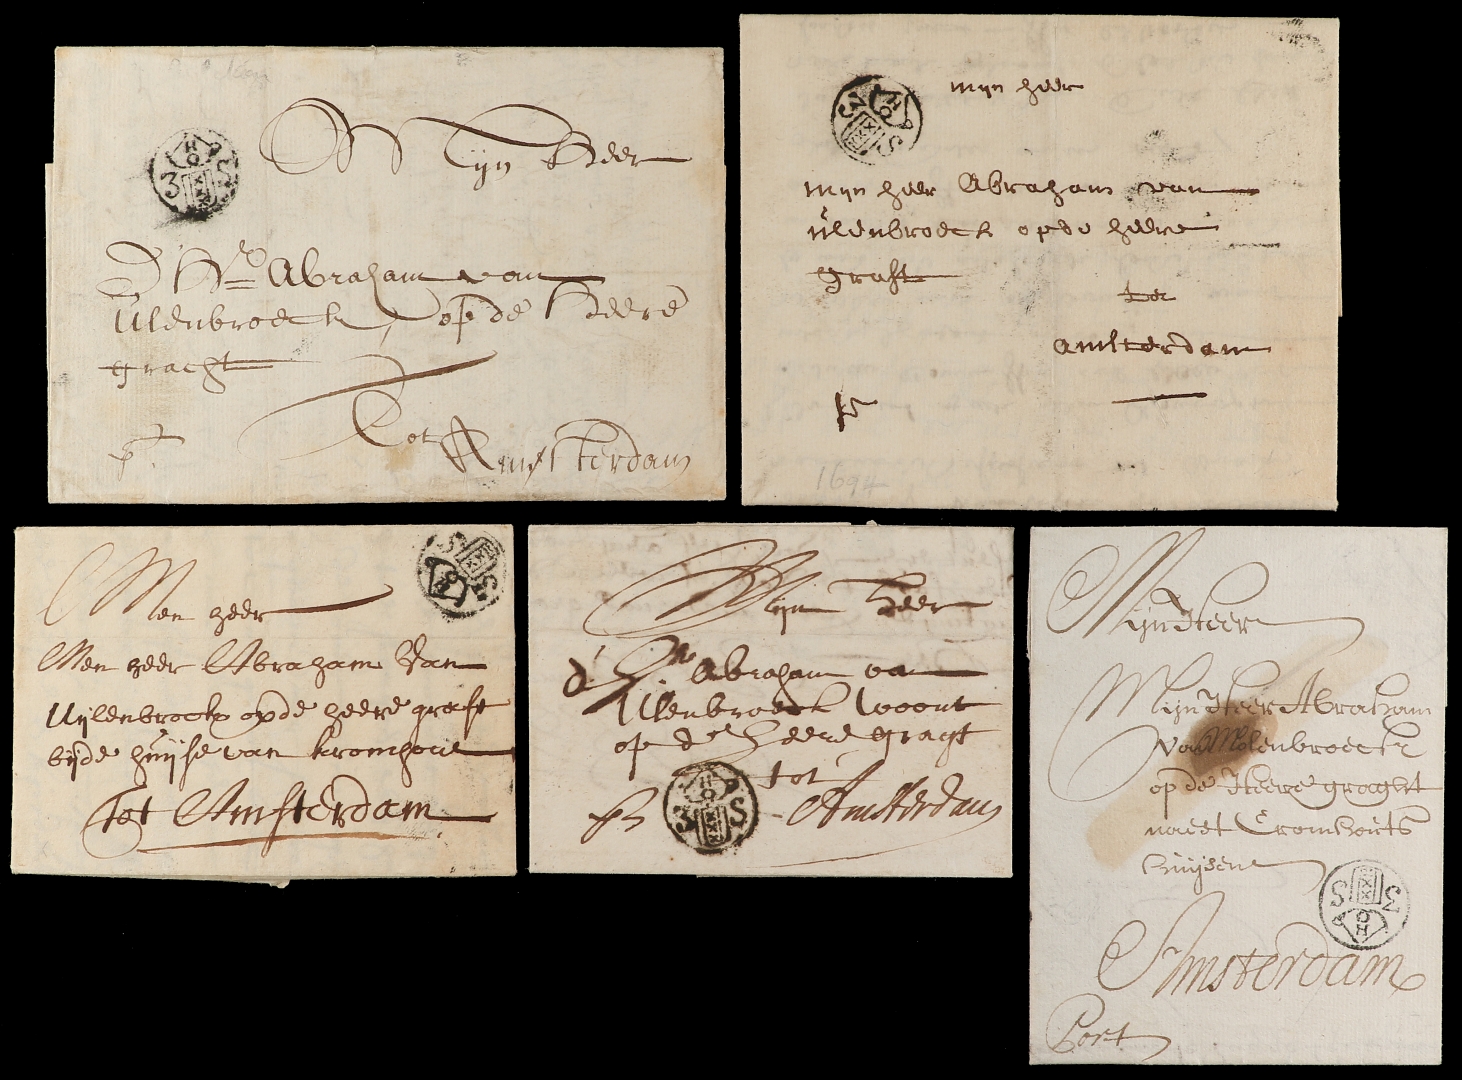 Mijn Heer
D Hr Abraham van
Ulenbroeck, op de Heere
gracht
Tot
Amsterdam
pt
HO
3 S
XXX
mijn heer
mijn heer Abraham van
ülenbroeck opde heere
graft
tot
amsterdam
1694
HO
3 S
XXX
Men heer
Men heer Abraham Van
Uÿlenbroeck opde heere graft
bijde huijse van kromhout
tot Amsterdam
HO
3 S
XXX
Mijn Heer
d' Hr. Abraham van
Ulenbroeck woont
op de Heere gragt
tot
Amsterdam
HO
3 S
XXX
Mijn Heer
Mijn Heer Abraham
van Wlenbroeck
op de Heere graght
naest Cromhouts
huijsen
Amsterdam
Port
HO
3 S
XXX